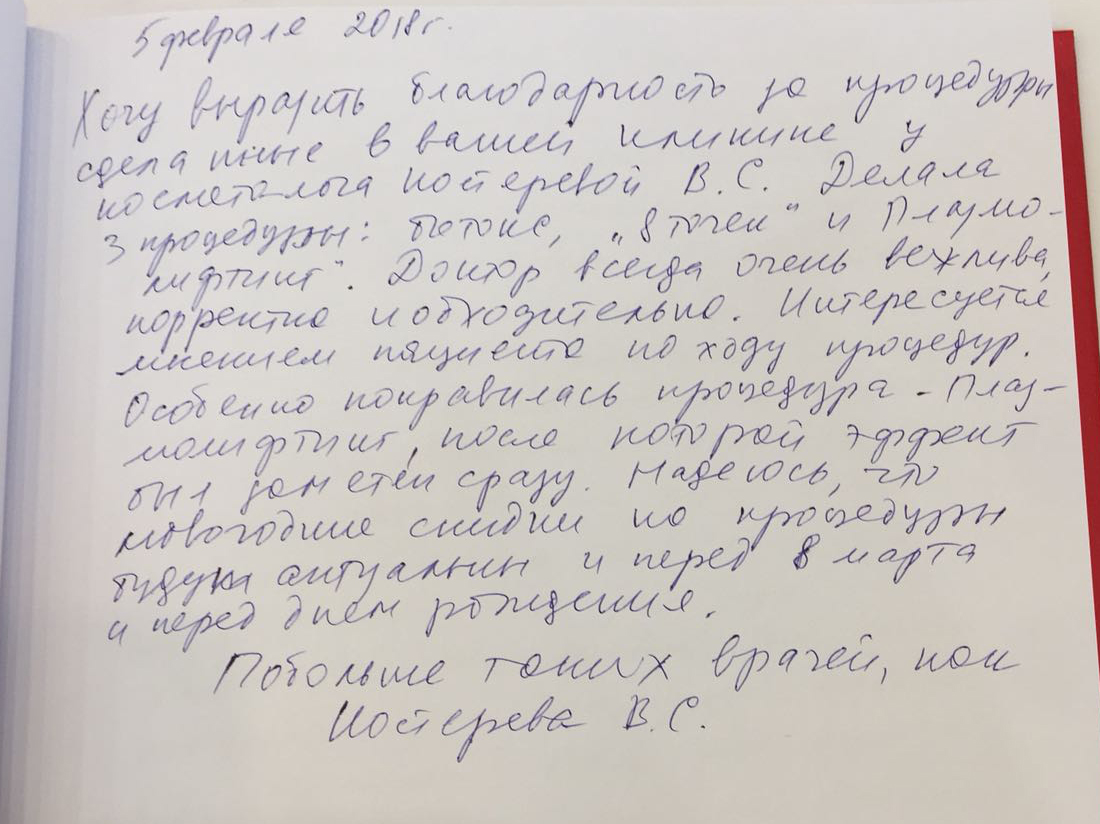 5 февраля 2018 г.
Хочу выразить благодарность за процедуры
сделанные в вашей клинике у
косметолога Костеревой В.С. Делала
3 процедуры: ботокс, „8 точек“ и Плазмо-
лифтинг“. Доктор всегда очень вежлива,
корректна и обходительна. Интересуется
мнением пациента по ходу процедур.
Особенно понравилась процедура - Плаз-
молифтинг, после которой эффект
был заметен сразу. Надеюсь, что
новогодние скидки на процедуры
будут актуальны и перед 8 марта
и перед днем рождения.
Побольше таких врачей, как
Костерева В.С.